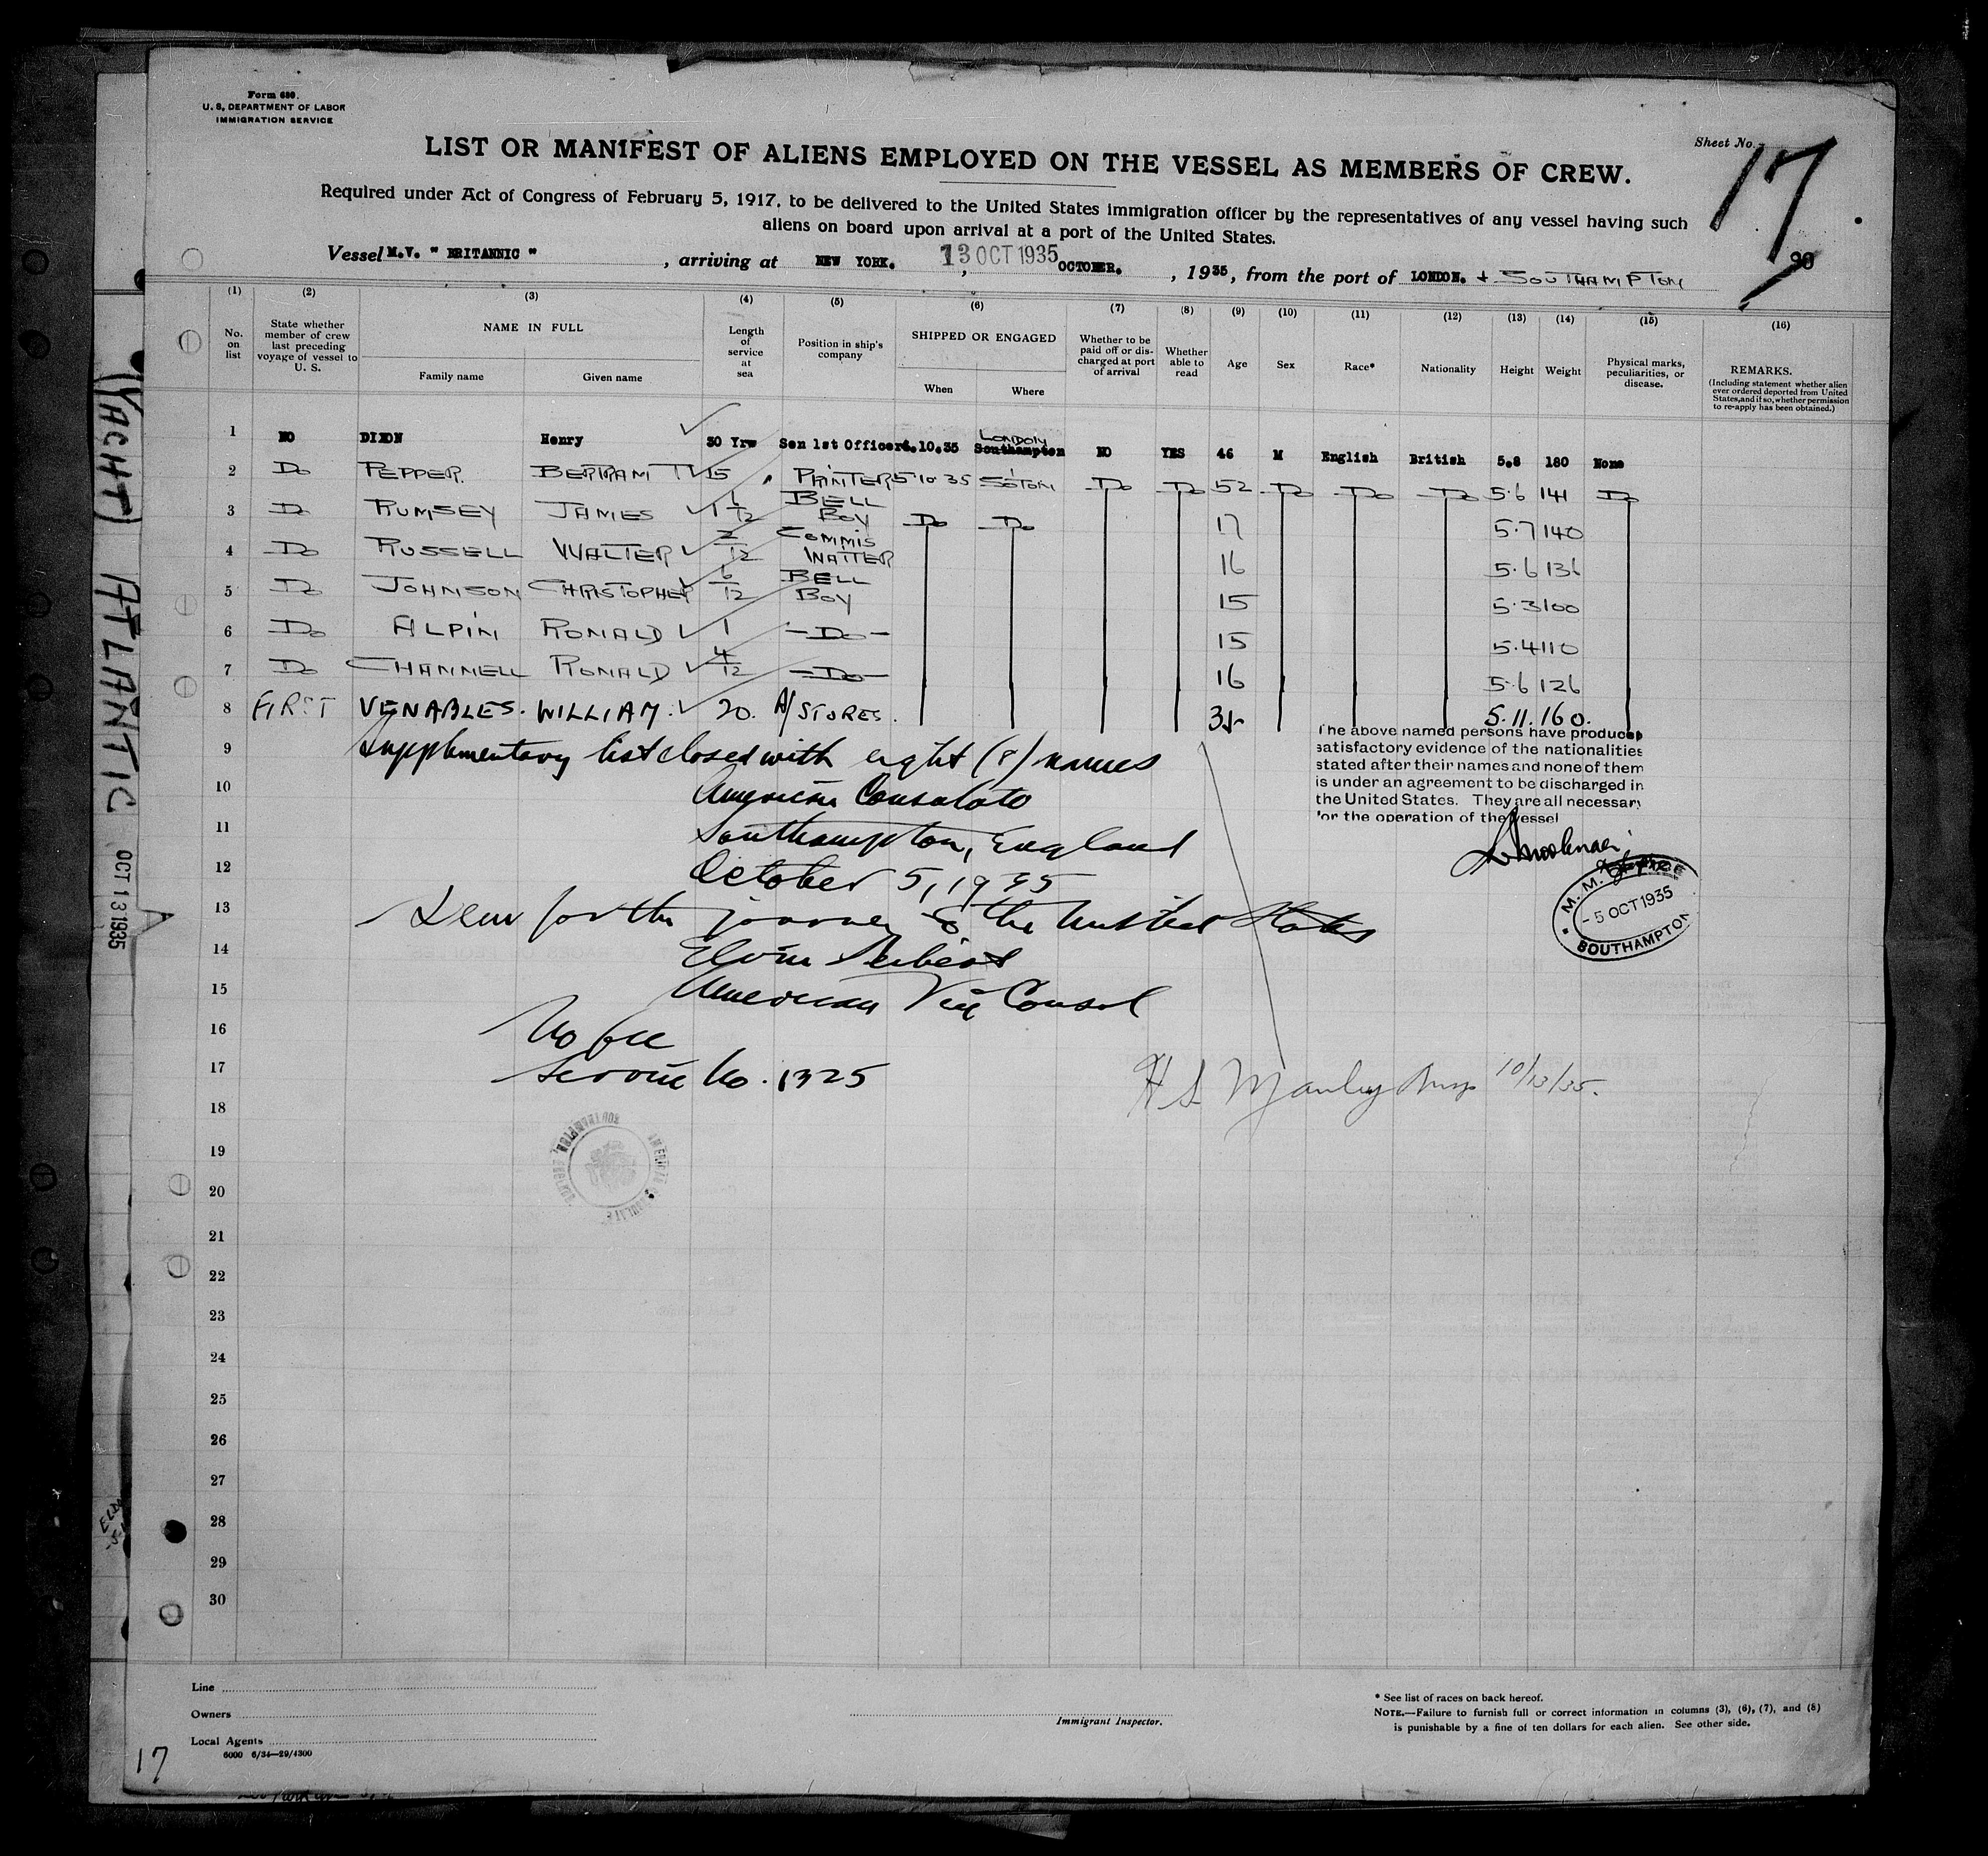 Form 680.
U. S. DEPARTMENT OF LABOR
IMMIGRATION SERVICE
Sheet No. 17
LIST OR MANIFEST OF ALIENS EMPLOYED ON THE VESSEL AS MEMBERS OF CREW.
Required under Act of Congress of February 5, 1917, to be delivered to the United States immigration officer by the representatives of any vessel having such
aliens on board upon arrival at a port of the United States.
Vessel M.V. " BRITANNIC " , arriving at NEW YORK. 13 OCT 1935 , OCTOBER. , 1935, from the port of LONDON. + SOUTHAMPTON
(1) (2) (3) (4) (5) (6) (7) (8) (9) (10) (11) (12) (13) (14) (15) (16)
No. on list
State whether member of crew last preceding voyage of vessel to U. S.
NAME IN FULL
Family name Given name
Length of service at sea
Position in ship's company
SHIPPED OR ENGAGED
When Where
Whether to be paid off or discharged at port of arrival
Whether able to read
Age
Sex
Race*
Nationality
Height
Weight
Physical marks, peculiarities, or disease.
REMARKS.
(Including statement whether alien ever ordered deported from United States, and if so, whether permission to re-apply has been obtained.)
1 NO DIXON Henry 30 Yrs Sen 1st Officer 4.10.35 LONDON Southampton NO YES 46 M English British 5.8 180 None
2 Do PEPPER. BERTRAM 15 PRINTER 5 10 35 SOTON Do Do 52 Do Do Do 5.6 141 Do
3 Do RUMSEY JAMES 1 1/12 BELL BOY Do Do 17 5.7 140
4 Do RUSSELL WALTER 2/12 COMMIS WAITER 16 5.6 136
5 Do JOHNSON CHRISTOPHER 6/12 BELL BOY 15 5.3 100
6 Do ALPIN RONALD 1 -Do- 15 5.4 110
7 Do CHANNELL RONALD 4/12 -Do- 16 5.6 126
8 FIRST VENABLES. WILLIAM. 20. A/ STORES. 35 5.11. 160.
The above named persons have produced
satisfactory evidence of the nationalities
stated after their names and none of them
is under an agreement to be discharged in
the United States. They are all necessary
for the operation of the vessel
9 Supplementary list closed with eight (8) names
10 American Consulate
11 Southampton, England
12 October 5, 1935
M. M. OFFICE
- 5 OCT 1935
SOUTHAMPTON
13 Seen for the journey to the United States
14
15 American Vice Consul
16 No fee
17 Service No. 1325
H S Manley Insp 10/13/35.
18
AMERICAN CONSULATE
SOUTHAMPTON, ENGLAND
19
20
21
22
23
24
25
26
27
28
29
30
Line
Owners
Local Agents
6000 6/34—29/4300
Immigrant Inspector.
* See list of races on back hereof.
NOTE.—Failure to furnish full or correct information in columns (3), (6), (7), and (8)
is punishable by a fine of ten dollars for each alien. See other side.
17
(YACHT) ATLANTIC OCT 13 1935